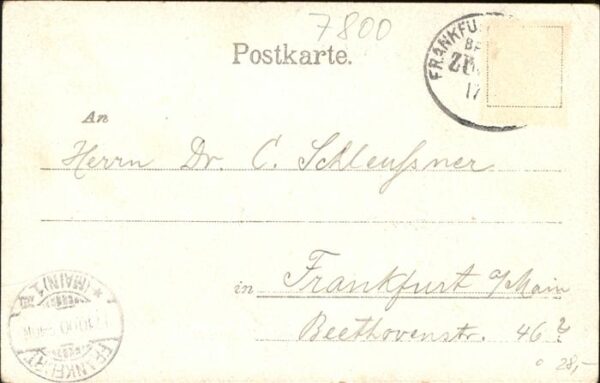 7800
Postkarte.
FRANKFU
ZU
17
An
Herrn Dr. C. Schleußner
in Frankfurt a/Main
Beethovenstr. 46
FRANKFURT
* (MAIN) 1.
28,-